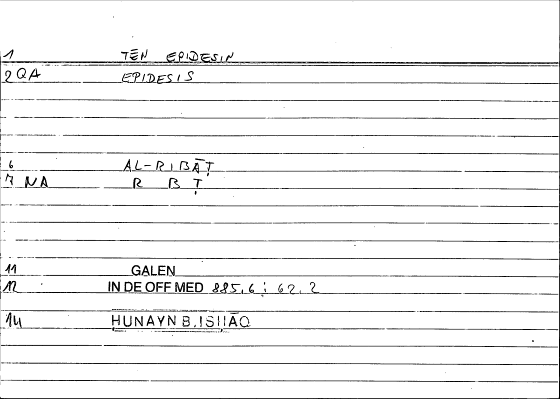 1 TĒN EPIDESIN
2 QA EPIDESIS
6 AL-RIBĀṬ
7 NA R B Ṭ
11 GALEN
12 IN DE OFF MED 885,6 ; 62.2
14 ḤUNAYN B. ISḤĀQ